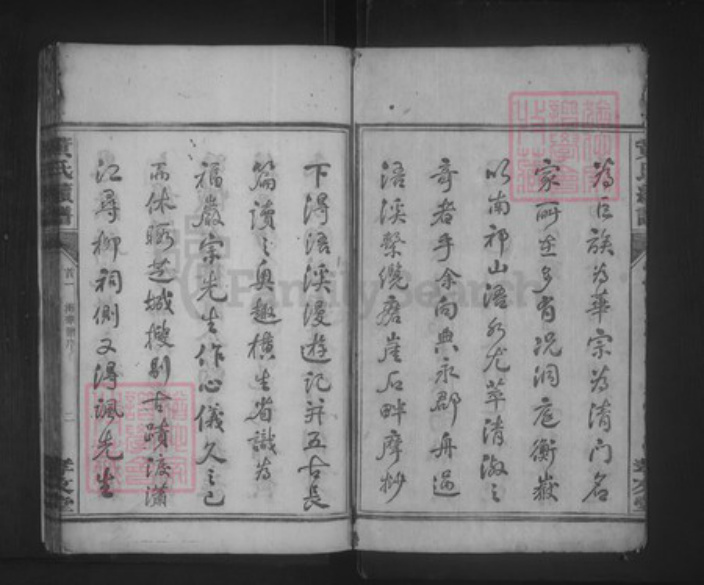 為巨族為華宗為清門名
家所在多有况洞庭衡嶽
以南祁山浯水尤萃清淑之
奇者乎余向典永郡舟過
浯溪繫纜磨崖石畔摩抄
下得浯溪漫遊記并五古長
篇讀之奥趣横生省識為
福巖宗先生作心儀久之已
而休暇芝城搜剔古蹟渡瀟
江尋柳祠側又得諷先生
黃氏續譜
首一
二
孝友堂
FamilySearch